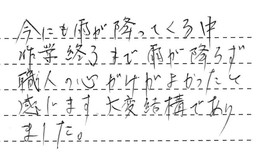 今にも雨が降ってくる中
作業終るまで雨が降らず
職人の心がけがよかったと
感じます 大変結構であり
ました。